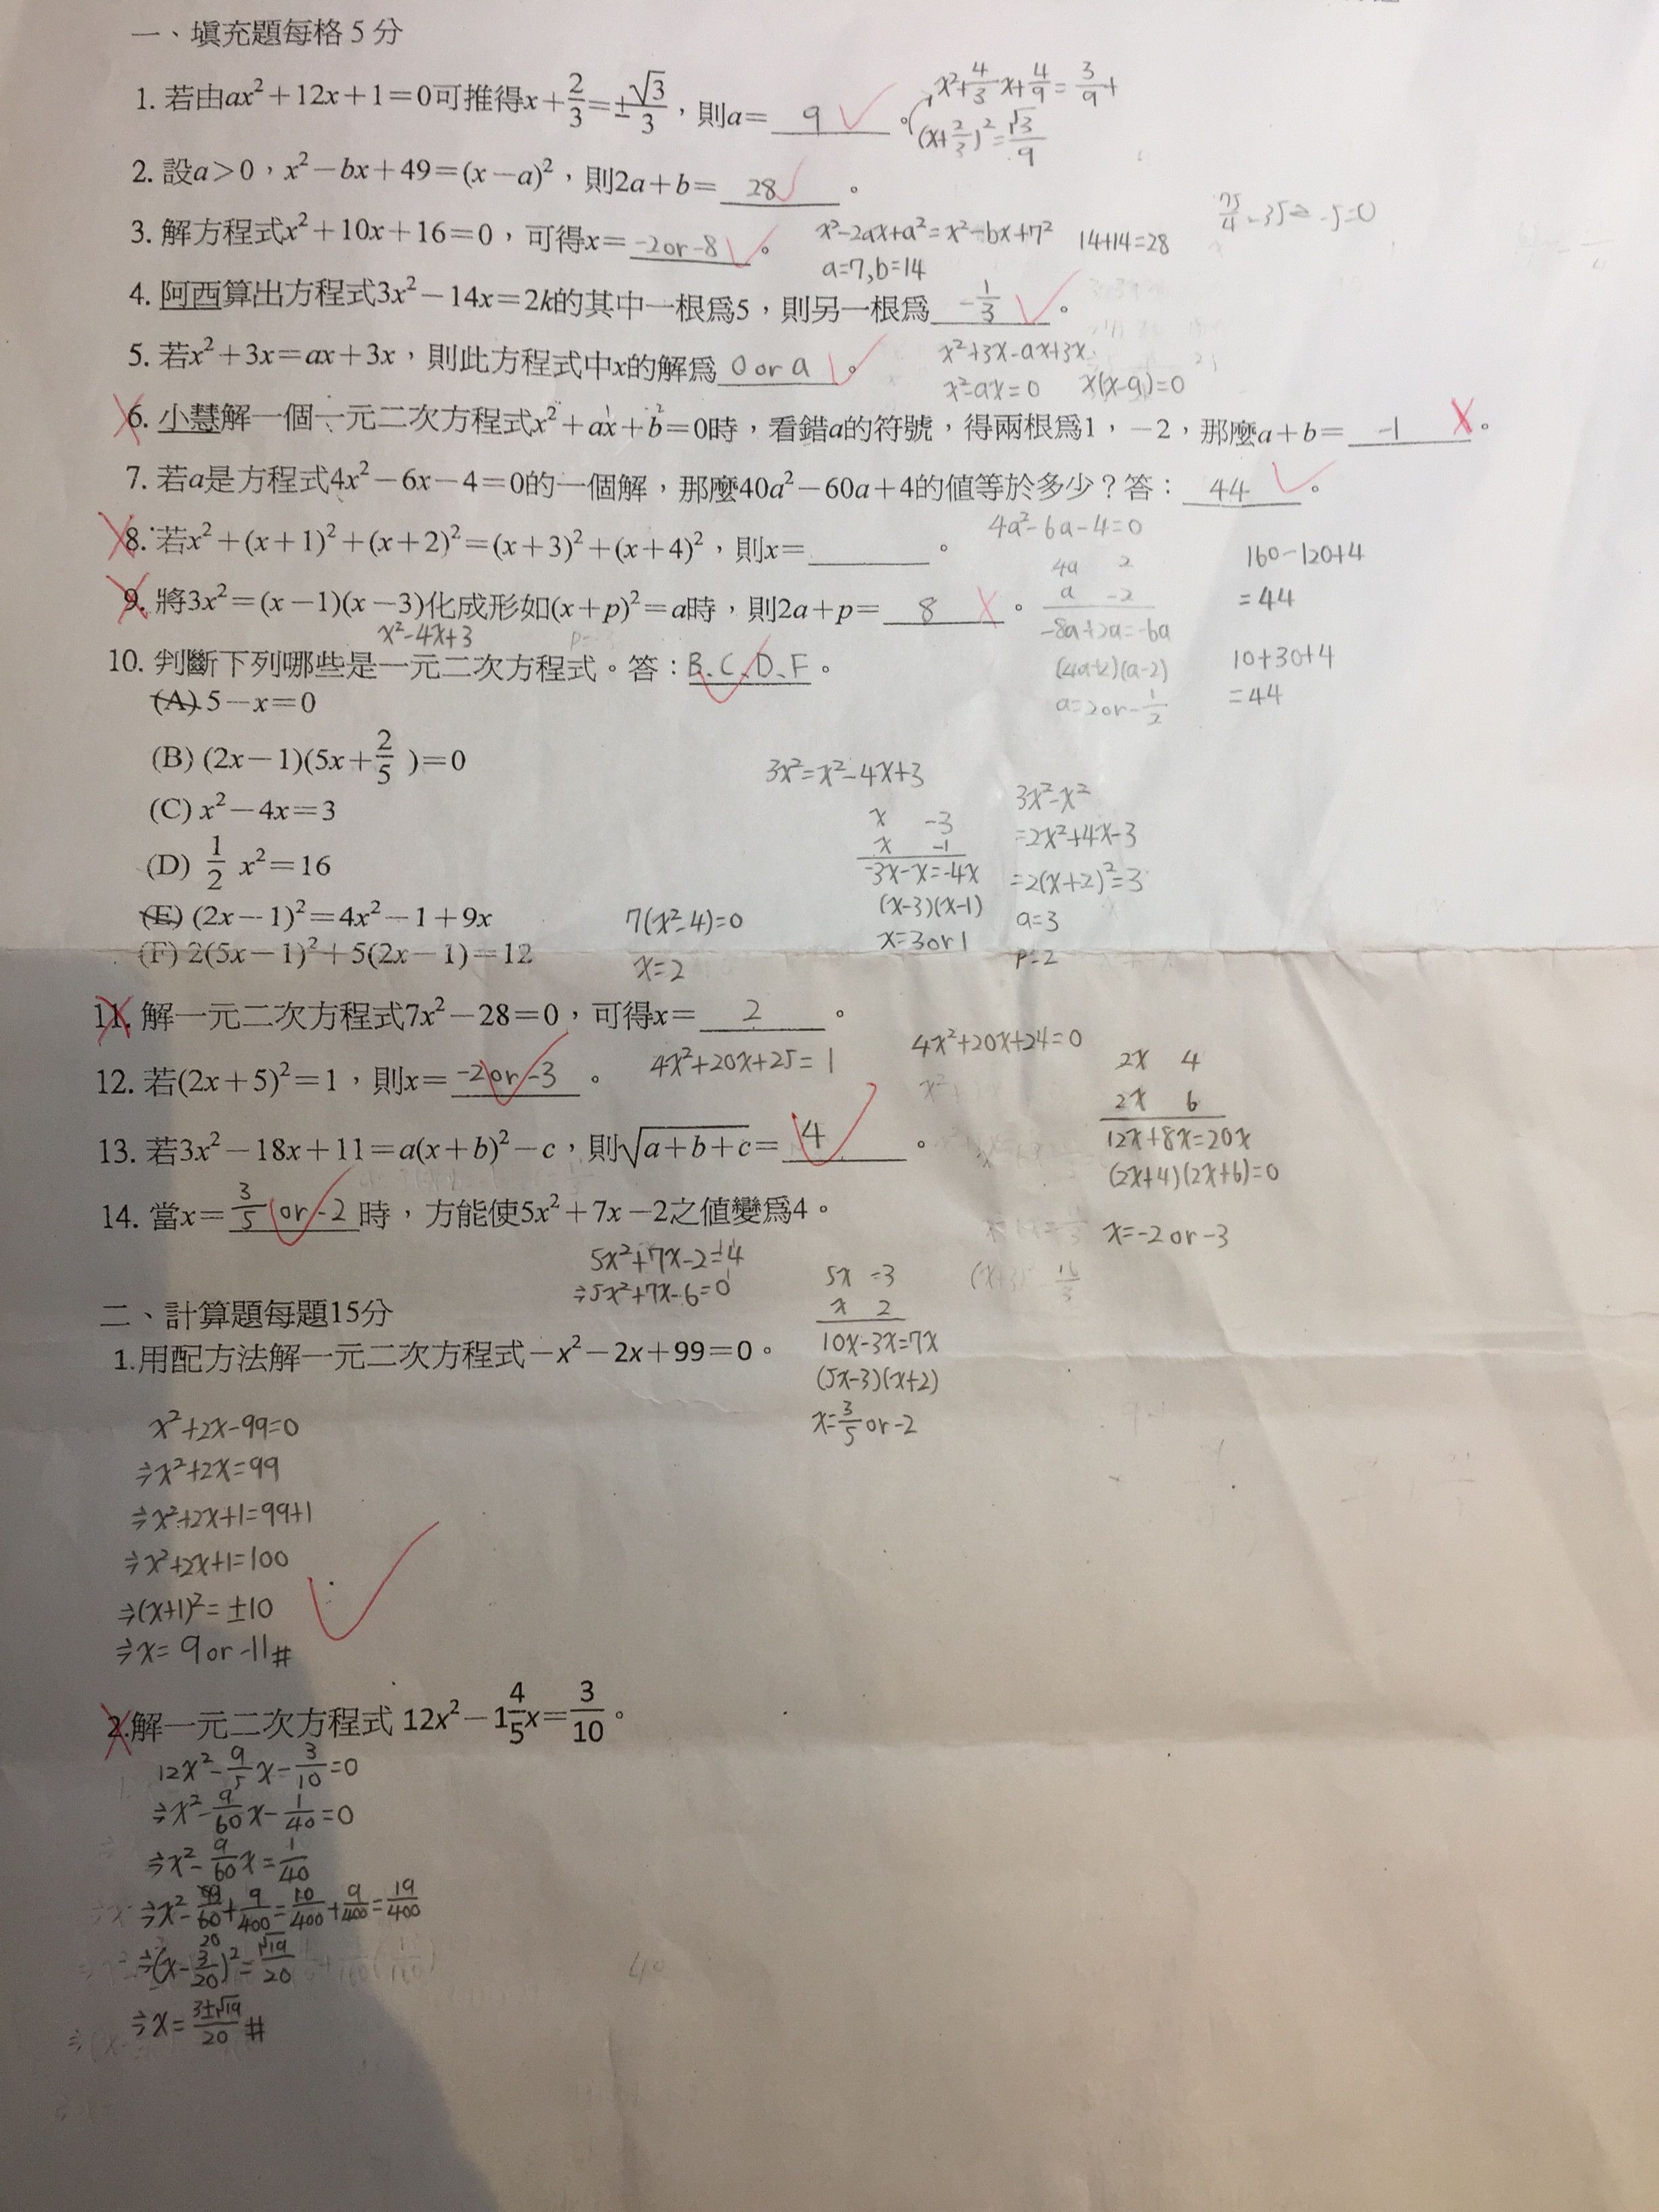 一、填充題每格5分
x²+4/3x+4/9=3/9+
1. 若由ax²+12x+1=0可推得x+2/3=±√3/3，則a=9。
(x+2/3)²=√3/9
2. 設a>0，x²-bx+49=(x-a)²，則2a+b=28。
75/4-35=-5=0
3. 解方程式x²+10x+16=0，可得x=-2or-8。
x²-2ax+a²=x²-bx+7² 14+14=28
a=7,b=14
4. 阿西算出方程式3x²-14x=2k的其中一根為5，則另一根為-1/3。
5. 若x²+3x=ax+3x，則此方程式中x的解為0 or a。
x²+3x-ax+3x
x²-ax=0 x(x-a)=0
6. 小慧解一個一元二次方程式x²+ax+b=0時，看錯a的符號，得兩根為1，-2，那麼a+b=-1。
7. 若a是方程式4x²-6x-4=0的一個解，那麼40a²-60a+4的值等於多少？答：44。
4a²-6a-4=0
8. 若x²+(x+1)²+(x+2)²=(x+3)²+(x+4)²，則x=＿＿。
4a 2
a -2
-8a+2a=-6a
(4a+2)(a-2)
a=2or-1/2
160-120+4
=44
10+30+4
=44
9. 將3x²=(x-1)(x-3)化成形如(x+p)²=a時，則2a+p=8。
x²-4x+3
10. 判斷下列哪些是一元二次方程式。答：B、C、D、F。
(A) 5-x=0
(B) (2x-1)(5x+2/5)=0
(C) x²-4x=3
(D) 1/2 x²=16
(E) (2x-1)²=4x²-1+9x
(F) 2(5x-1)²+5(2x-1)=12
3x²=x²-4x+3
x -3
x -1
-3x-x=-4x
(x-3)(x-1)
x=3or1
3x²-x²
=2x²+4x-3
=2(x+2)²=3
a=3
p=2
7(x²-4)=0
x=2
11. 解一元二次方程式7x²-28=0，可得x=2。
12. 若(2x+5)²=1，則x=-2or-3。
4x²+20x+25=1
4x²+20x+24=0
2x 4
2x 6
12x+8x=20x
(2x+4)(2x+6)=0
x=-2 or -3
13. 若3x²-18x+11=a(x+b)²-c，則√a+b+c=4。
14. 當x=3/5 or -2時，方能使5x²+7x-2之值變為4。
5x²+7x-2=4
⇒5x²+7x-6=0
5x -3
x 2
10x-3x=7x
(5x-3)(x+2)
x=3/5 or -2
二、計算題每題15分
1.用配方法解一元二次方程式-x²-2x+99=0。
x²+2x-99=0
⇒x²+2x=99
⇒x²+2x+1=99+1
⇒x²+2x+1=100
⇒(x+1)²=±10
⇒x=9 or -11#
2.解一元二次方程式 12x²-1 4/5x=3/10。
12x²-9/5x-3/10=0
⇒x²-9/60x-1/40=0
⇒x²-9/60x=1/40
⇒x²-/60+9/400=10/400+9/400=19/400
⇒(x-3/20)²=√19/20
⇒x=3±√19/20#